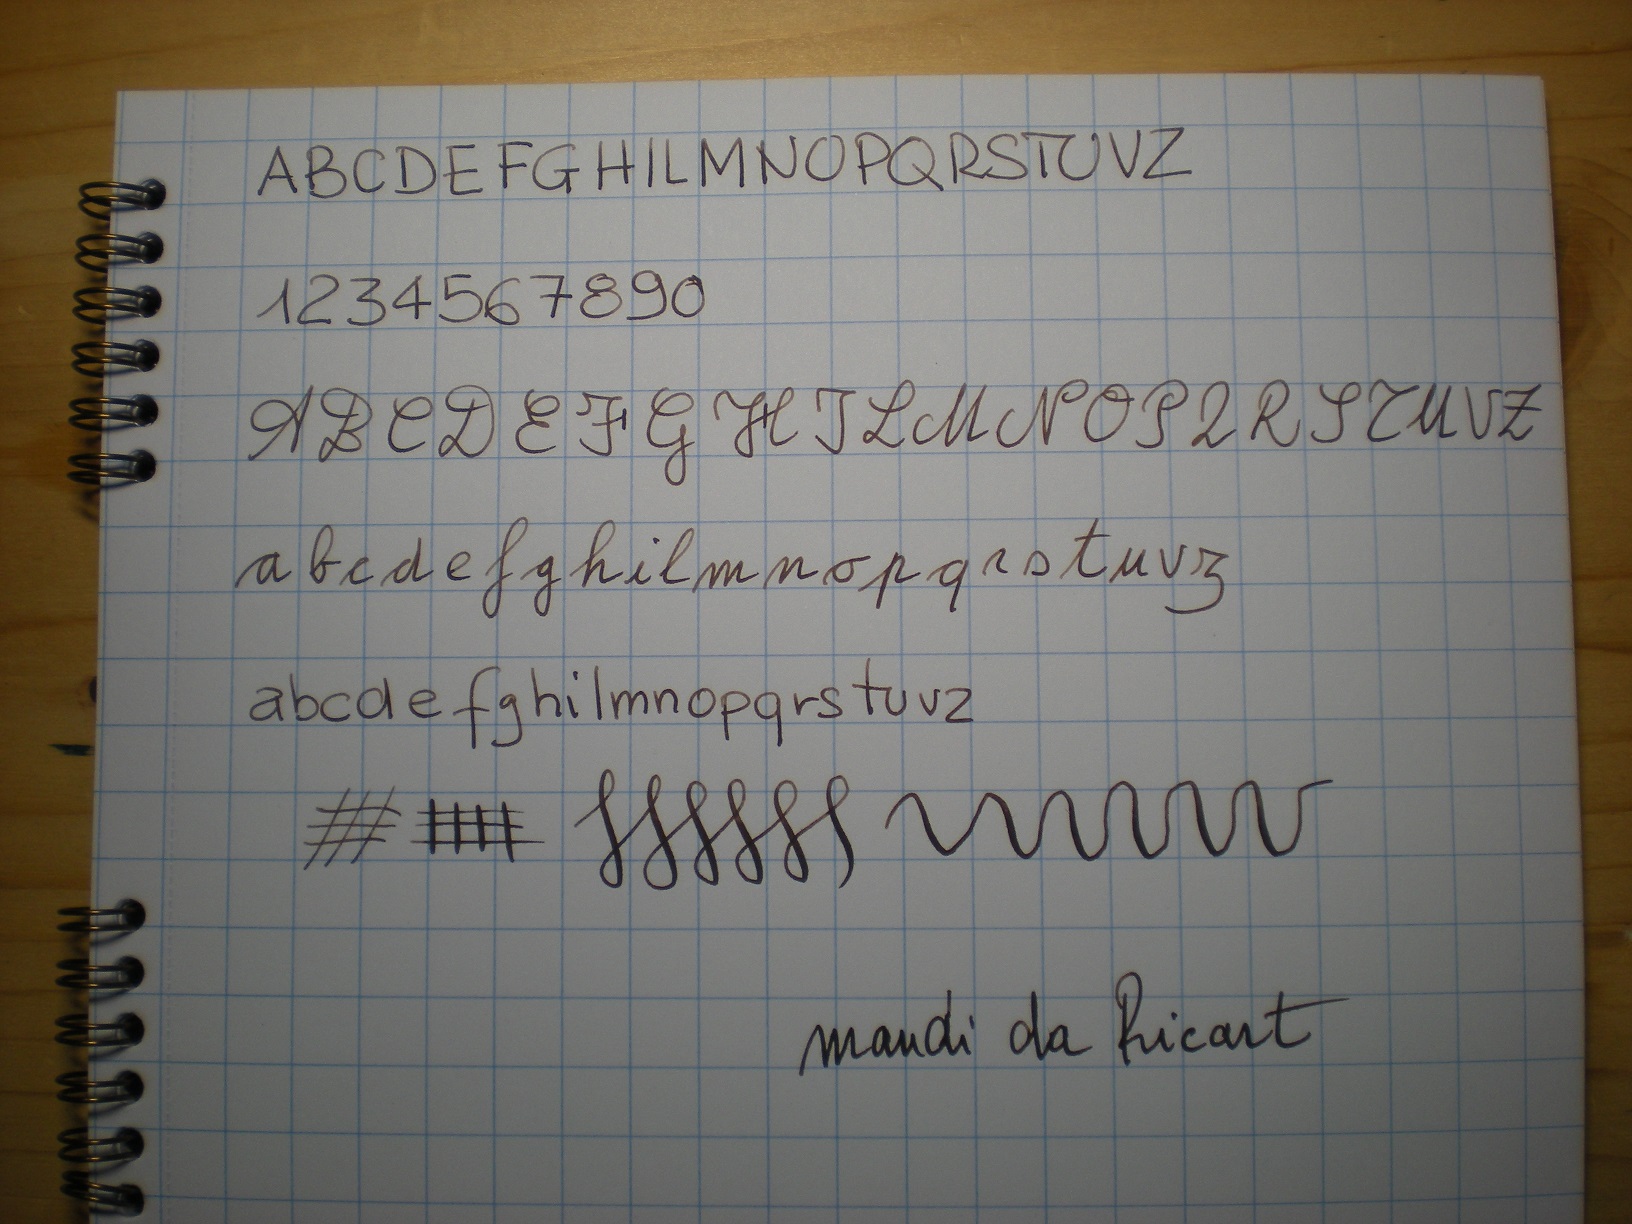 ABCDEFGHILMNOPQRSTUVZ
1234567890
ABCDEFGHILMNOPQRSTUVZ
abcdefghilmnopqrstuvz
abcdefghilmnopqrstuvz
mandi da Ricart